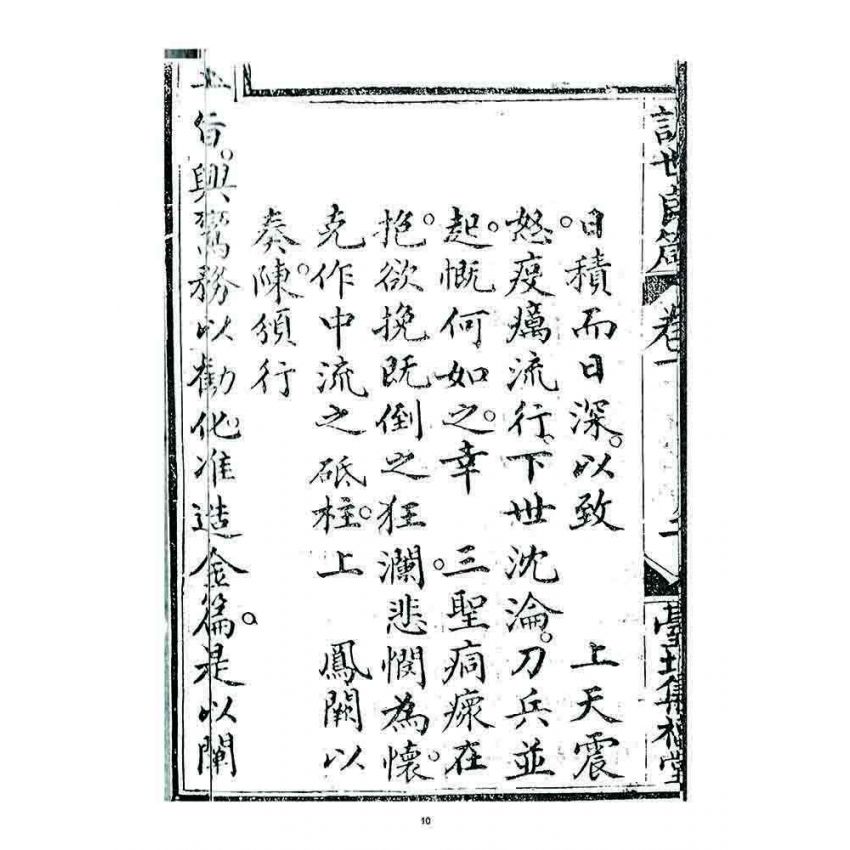 世 卷一 二 集 堂
日積而日深。以致 上天震
怒。疫癘流行。下世沈淪。刀兵並
起。慨何如之。幸 三聖痌瘝在
抱。欲挽既倒之狂瀾。悲憫為懷。
克作中流之砥柱。上 鳳闕以
奏陳。頒行
旨。興鸞務以勸化。准造金篇。是以闡
10